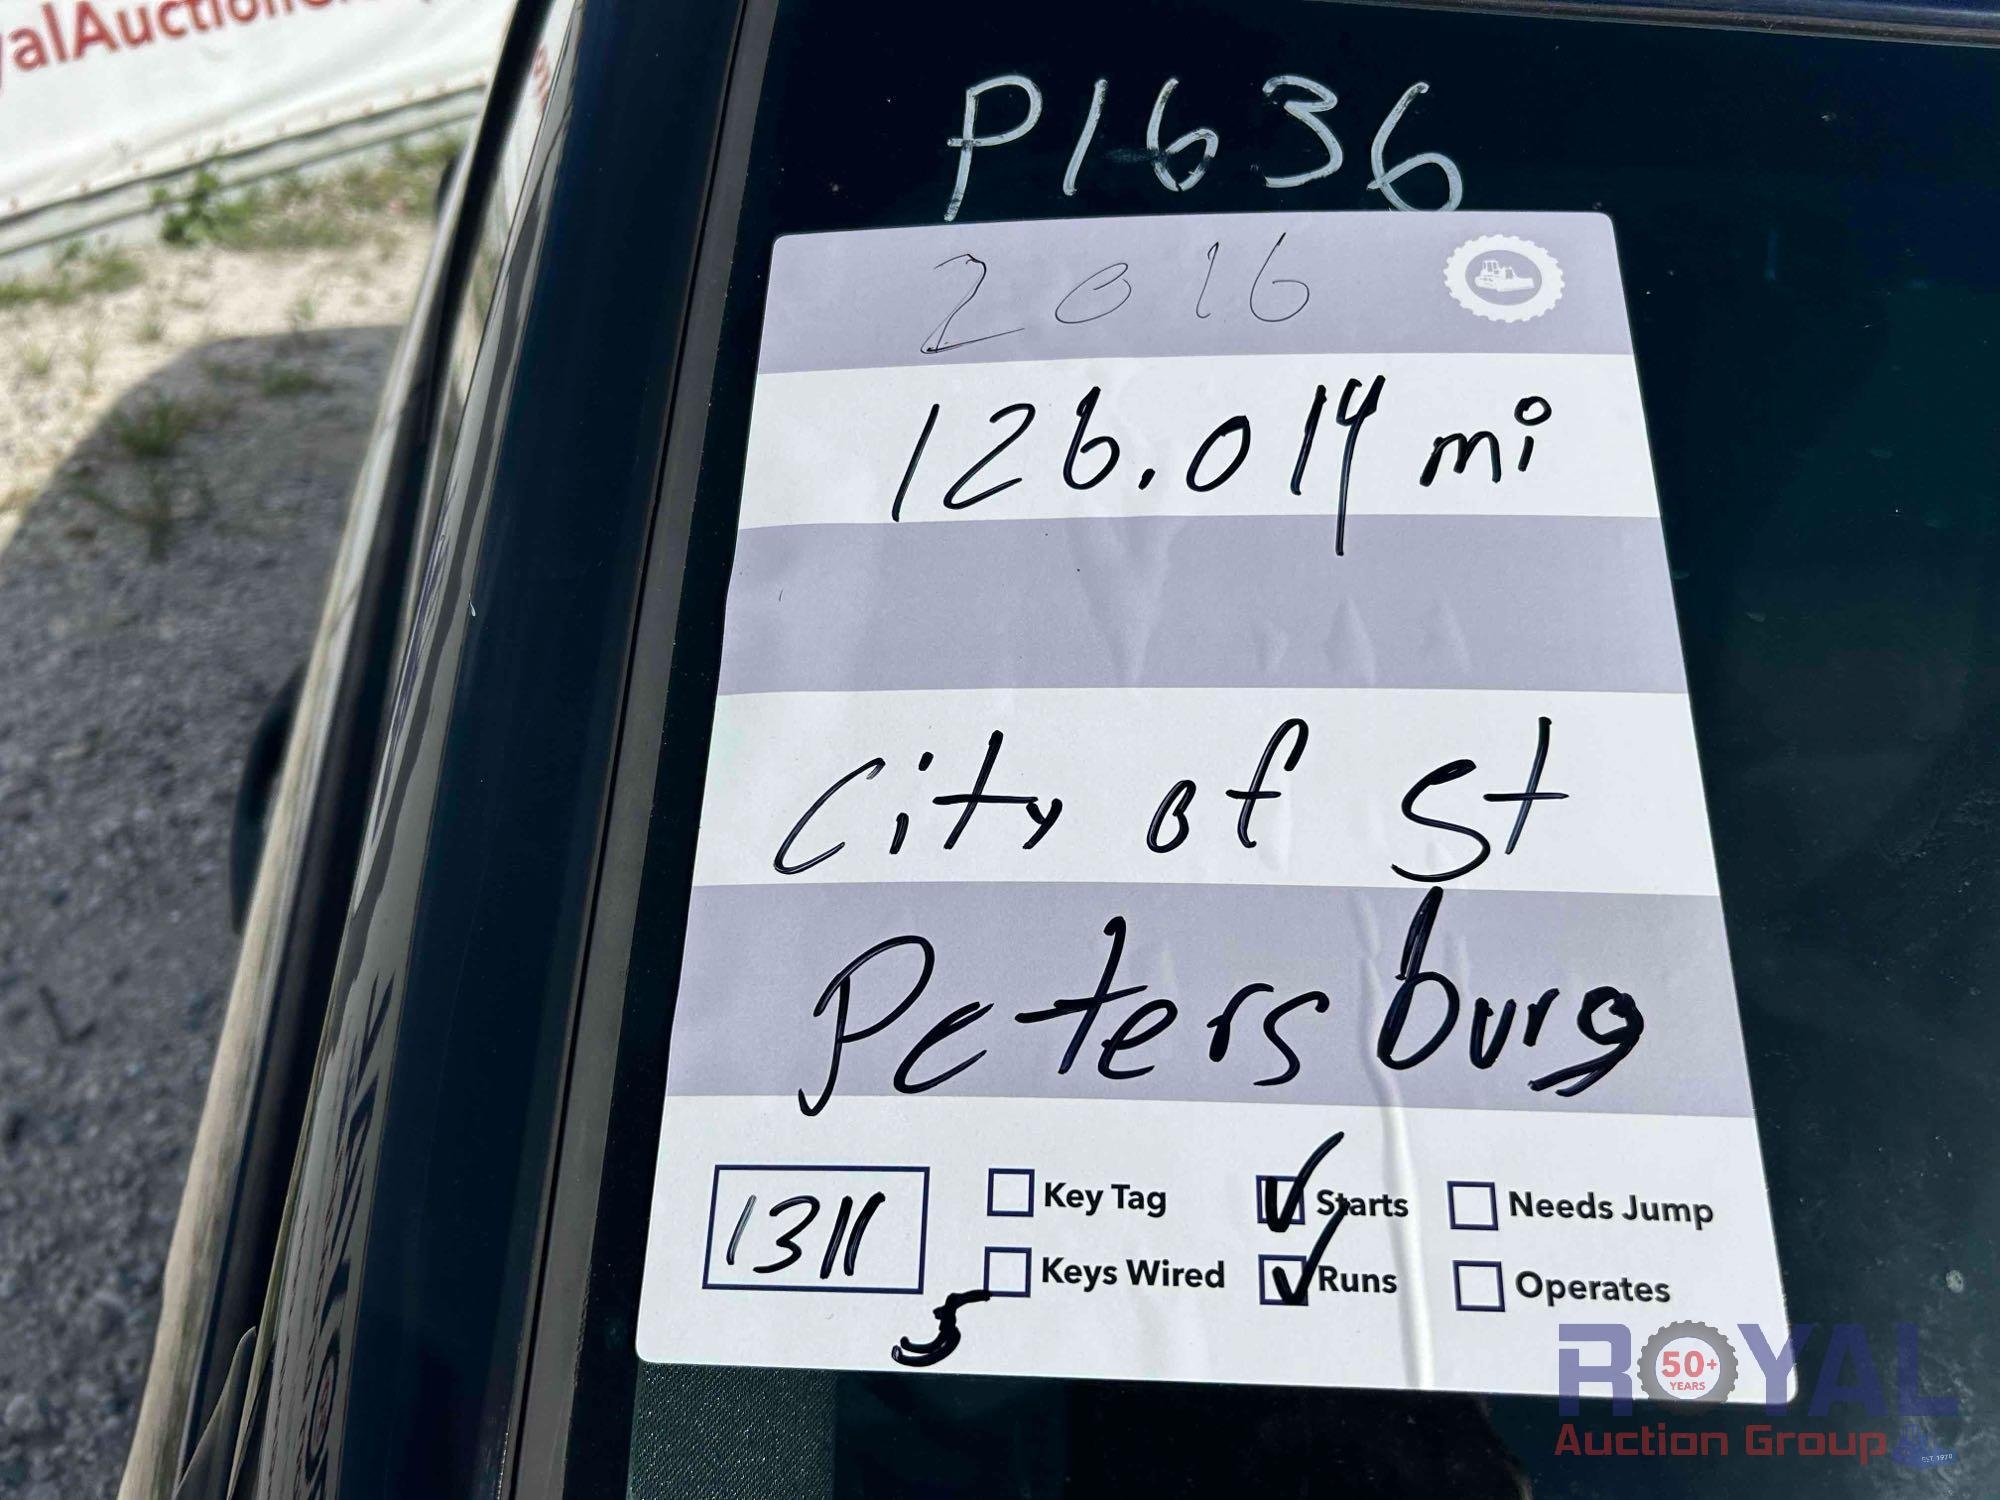 yalAuction
P1636
2016
126.014 mi
City of St
Petersburg
1311
Key Tag
Starts
Needs Jump
Keys Wired
Runs
Operates
5
ROYAL
50+
YEARS
Auction Group
EST. 1970